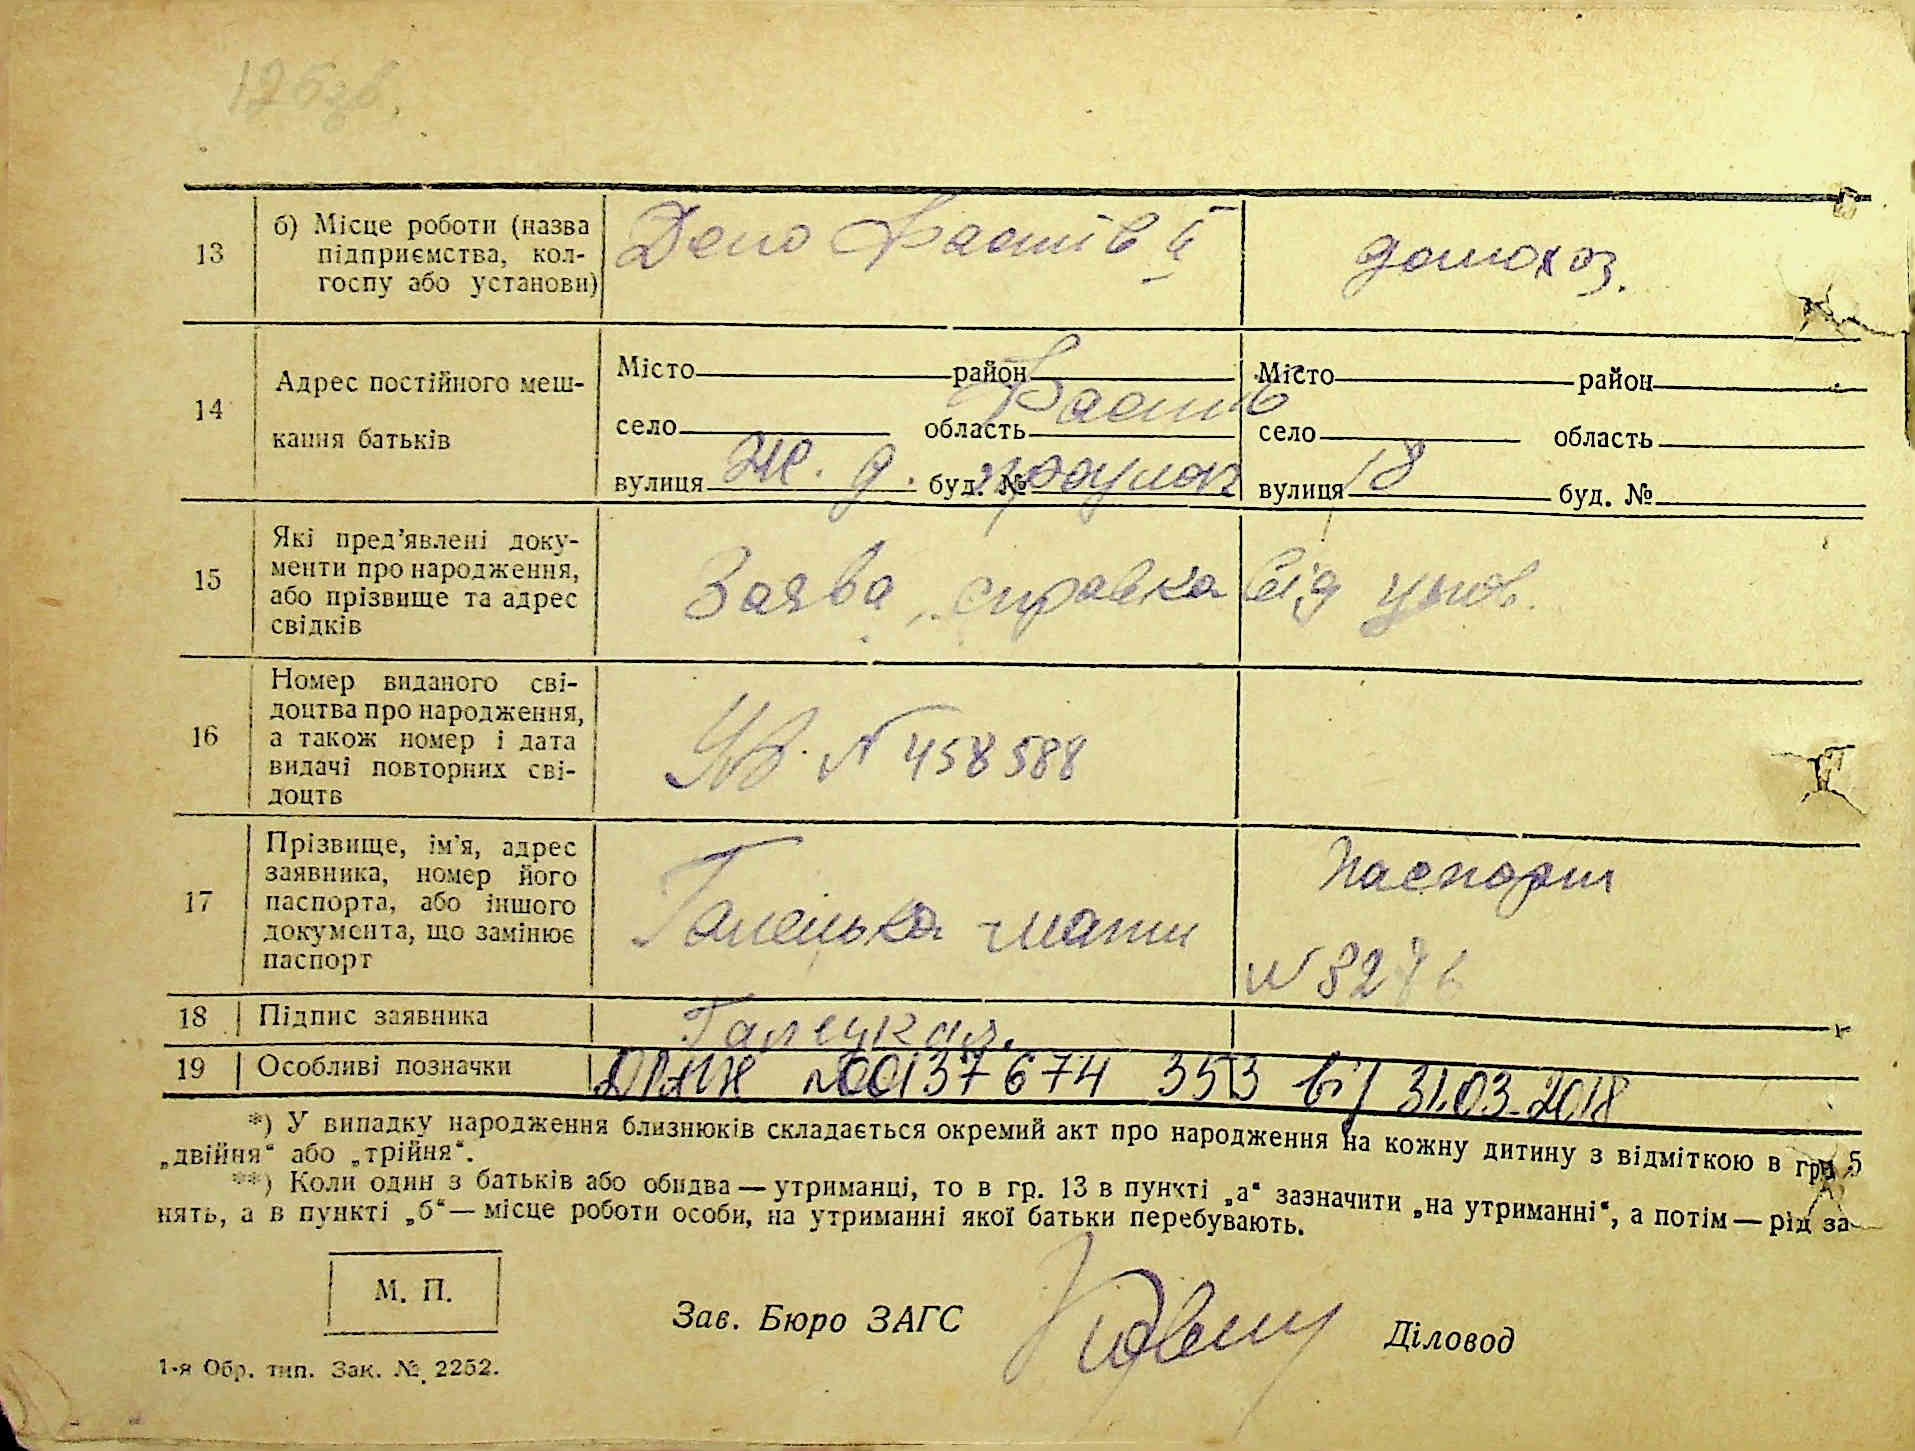 126зв.
13
б) Місце роботи (назва
підприємства, кол-
госпу або установи)
Депо Фастів ІІ
домохоз.
14
Адрес постійного меш-
кання батьків
Місто район Місто район
Фастів
село область село область
вулиця Ж. д. буд. № вулиця 18 буд. №
15
Які пред'явлені доку-
менти про народження,
або прізвище та адрес
свідків
Заява, справка від
16
Номер виданого сві-
доцтва про народження,
а також номер і дата
видачі повторних сві-
доцтв
N 458588
17
Прізвище, ім'я, адрес
заявника, номер його
паспорта, або іншого
документа, що замінює
паспорт
Галецька мати
Паспорт
N 827
18 Підпис заявника
Галецкая.
19 Особливі позначки
N00137674353 від 31.03.2018
*) У випадку народження близнюків складається окремий акт про народження на кожну дитину з відміткою в гр. 5
„двійня“ або „трійня“.
**) Коли один з батьків або обидва — утриманці, то в гр. 13 в пункті „а“ зазначити „на утриманні“, а потім — рід за-
нять, а в пункті „б“ — місце роботи особи, на утриманні якої батьки перебувають.
М. П.
Зав. Бюро ЗАГС
Діловод
1-я Обр. тип. Зак. № 2252.